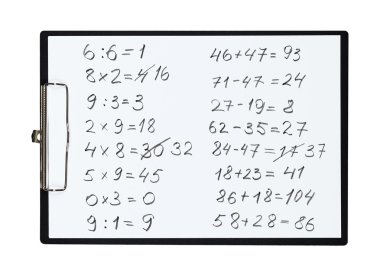 6:6=1
8×2=4 16
9:3=3
2×9=18
4×8=30 32
5×9=45
0×3=0
9:1=9
46+47=93
71-47=24
27-19=8
62-35=27
84-47=17 37
18+23=41
86+18=104
58+28=86